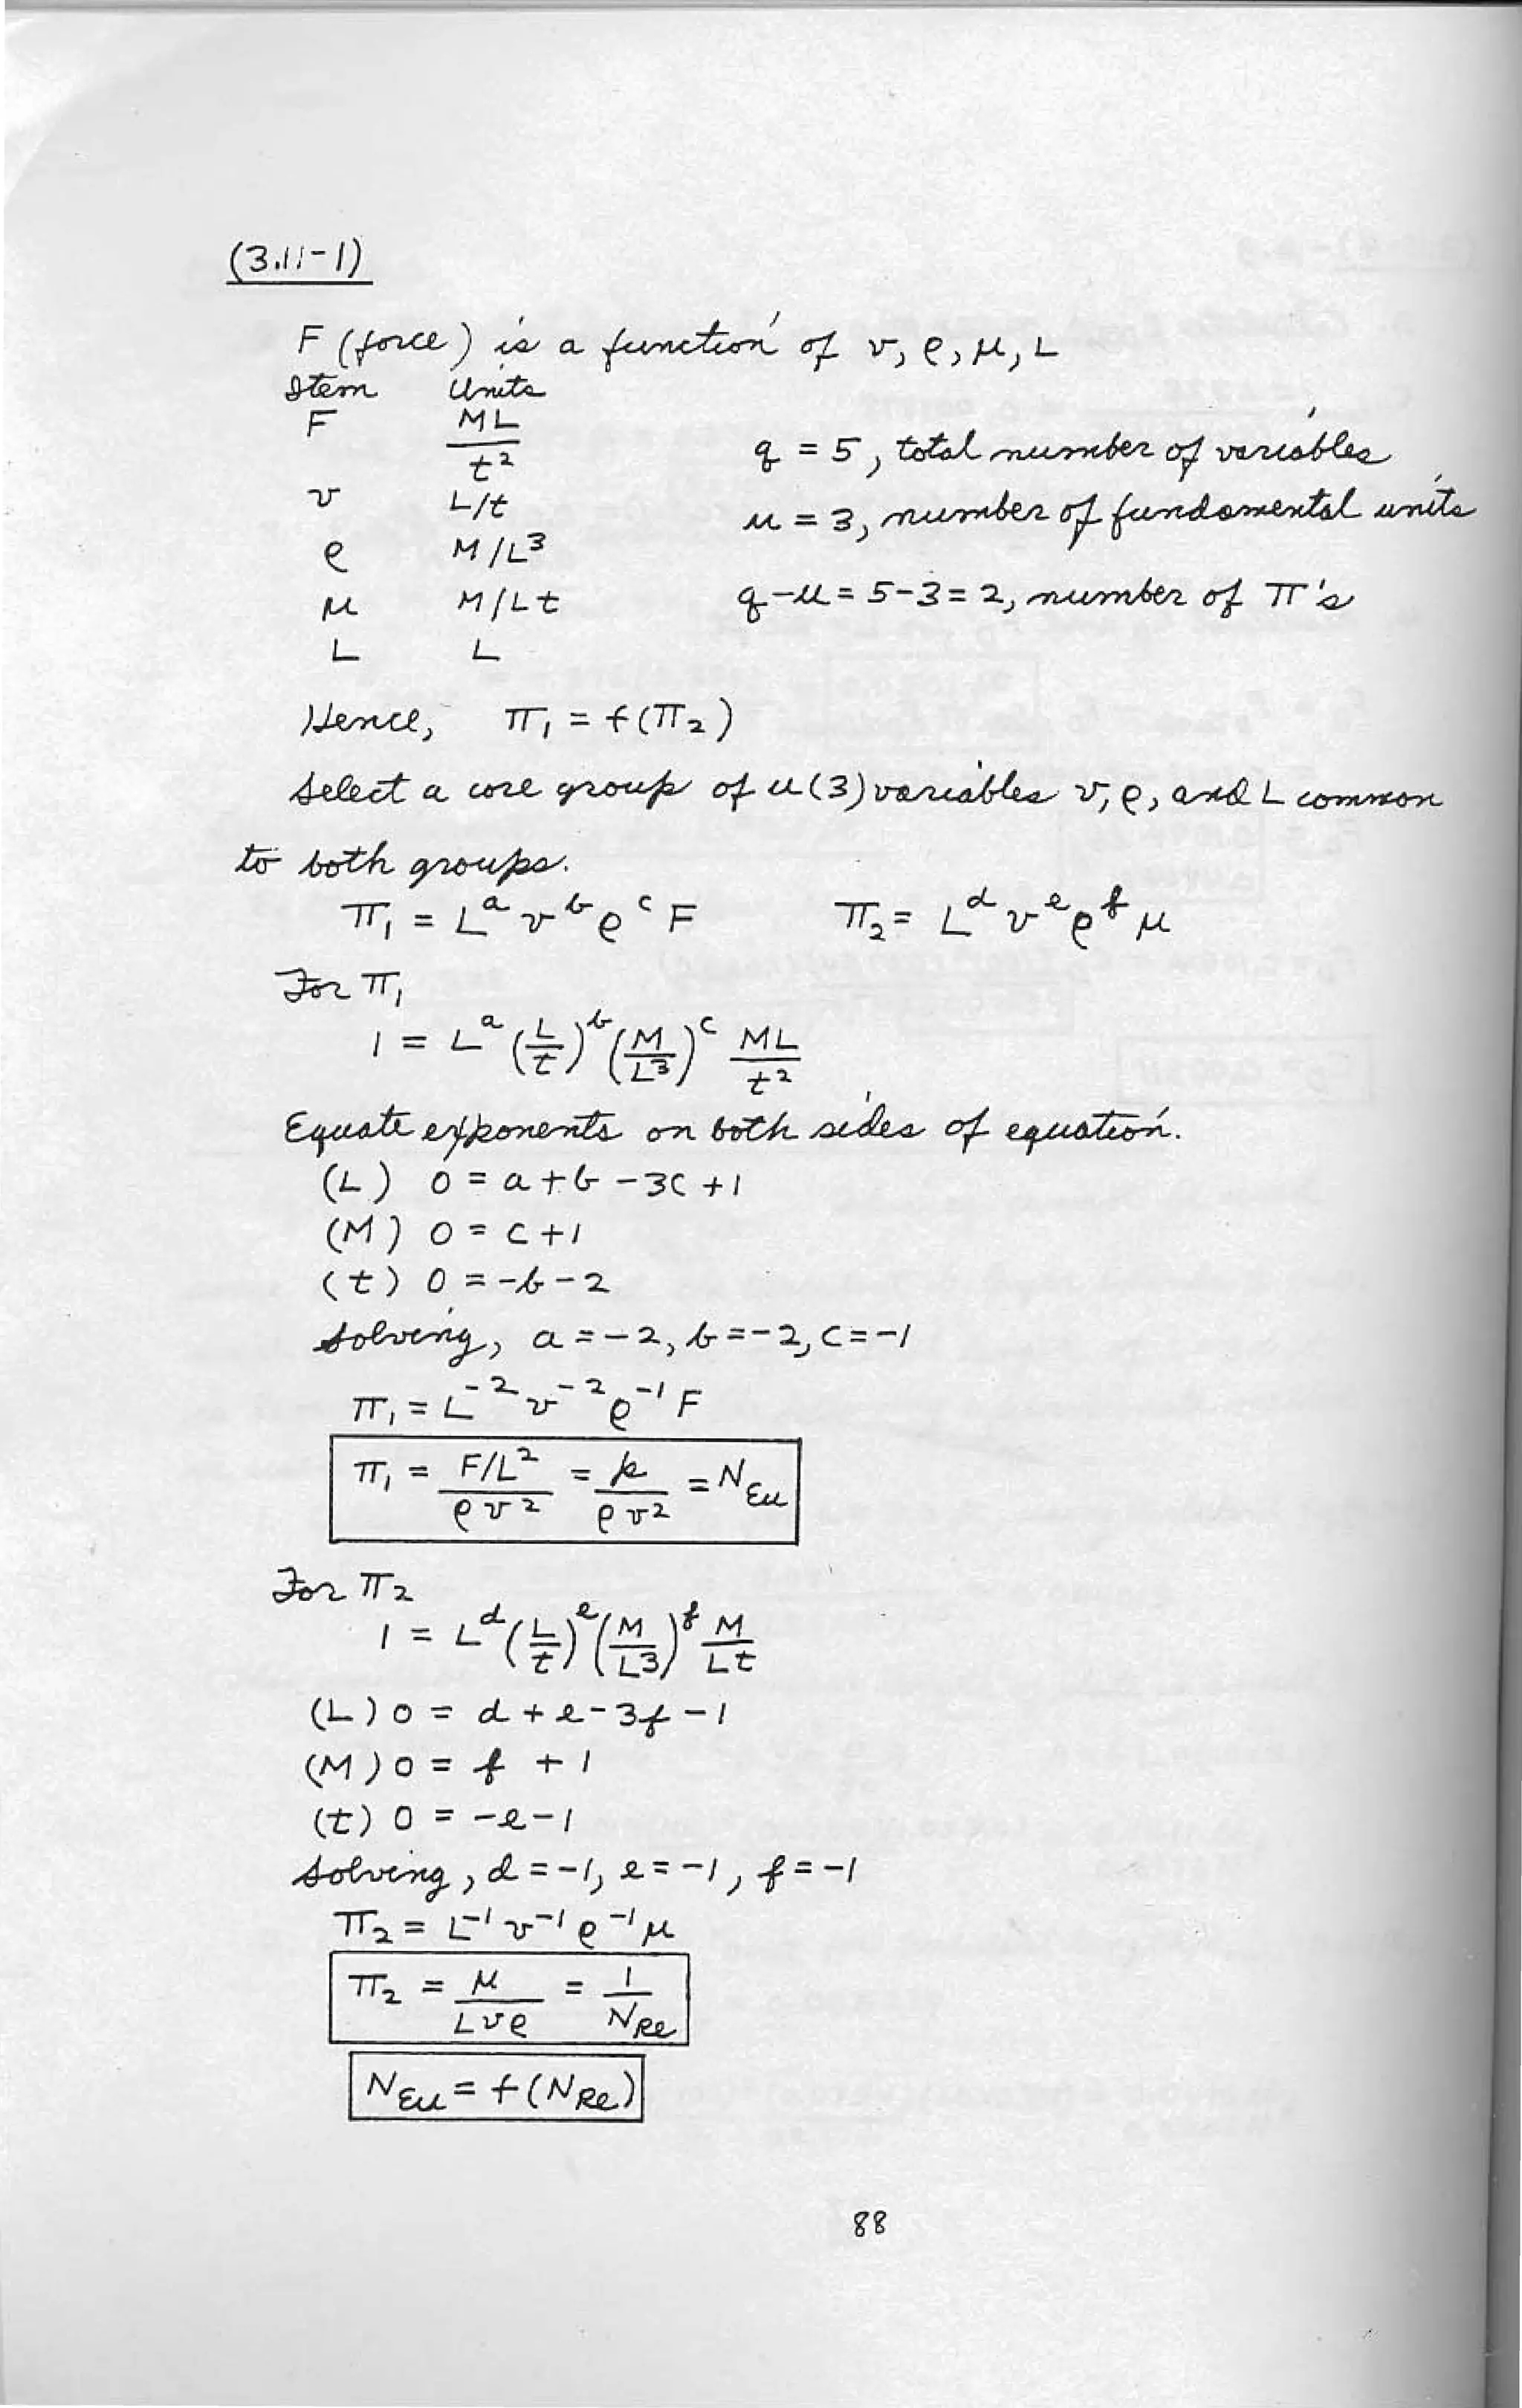 (3.11-1)
F (force) is a function of v, ρ, μ, L
Item Units
F ML/t²
q = 5, total number of variables
v L/t
u = 3, number of fundamental units
ρ M/L³
μ M/Lt
q-u = 5-3 = 2, number of π's
L L
Hence, π₁ = f(π₂)
Select a core group of u(3) variables v, ρ, and L common
to both groups.
π₁ = Lᵃ vᵇ ρᶜ F π₂ = Lᵈ vᵉ ρᶠ μ
For π₁
1 = Lᵃ (L/t)ᵇ (M/L³)ᶜ ML/t²
Equate exponents on both sides of equation.
(L) 0 = a + b - 3c + 1
(M) 0 = c + 1
(t) 0 = -b - 2
Solving, a = -2, b = -2, c = -1
π₁ = L⁻² v⁻² ρ⁻¹ F
π₁ = F/L² / ρv² = p / ρv² = N_Eu
For π₂
1 = Lᵈ (L/t)ᵉ (M/L³)ᶠ M/Lt
(L) 0 = d + e - 3f - 1
(M) 0 = f + 1
(t) 0 = -e - 1
Solving, d = -1, e = -1, f = -1
π₂ = L⁻¹ v⁻¹ ρ⁻¹ μ
π₂ = μ / Lvρ = 1 / N_Re
N_Eu = f(N_Re)
88